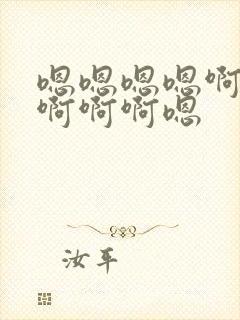 嗯嗯嗯嗯啊
啊啊啊嗯
汝平